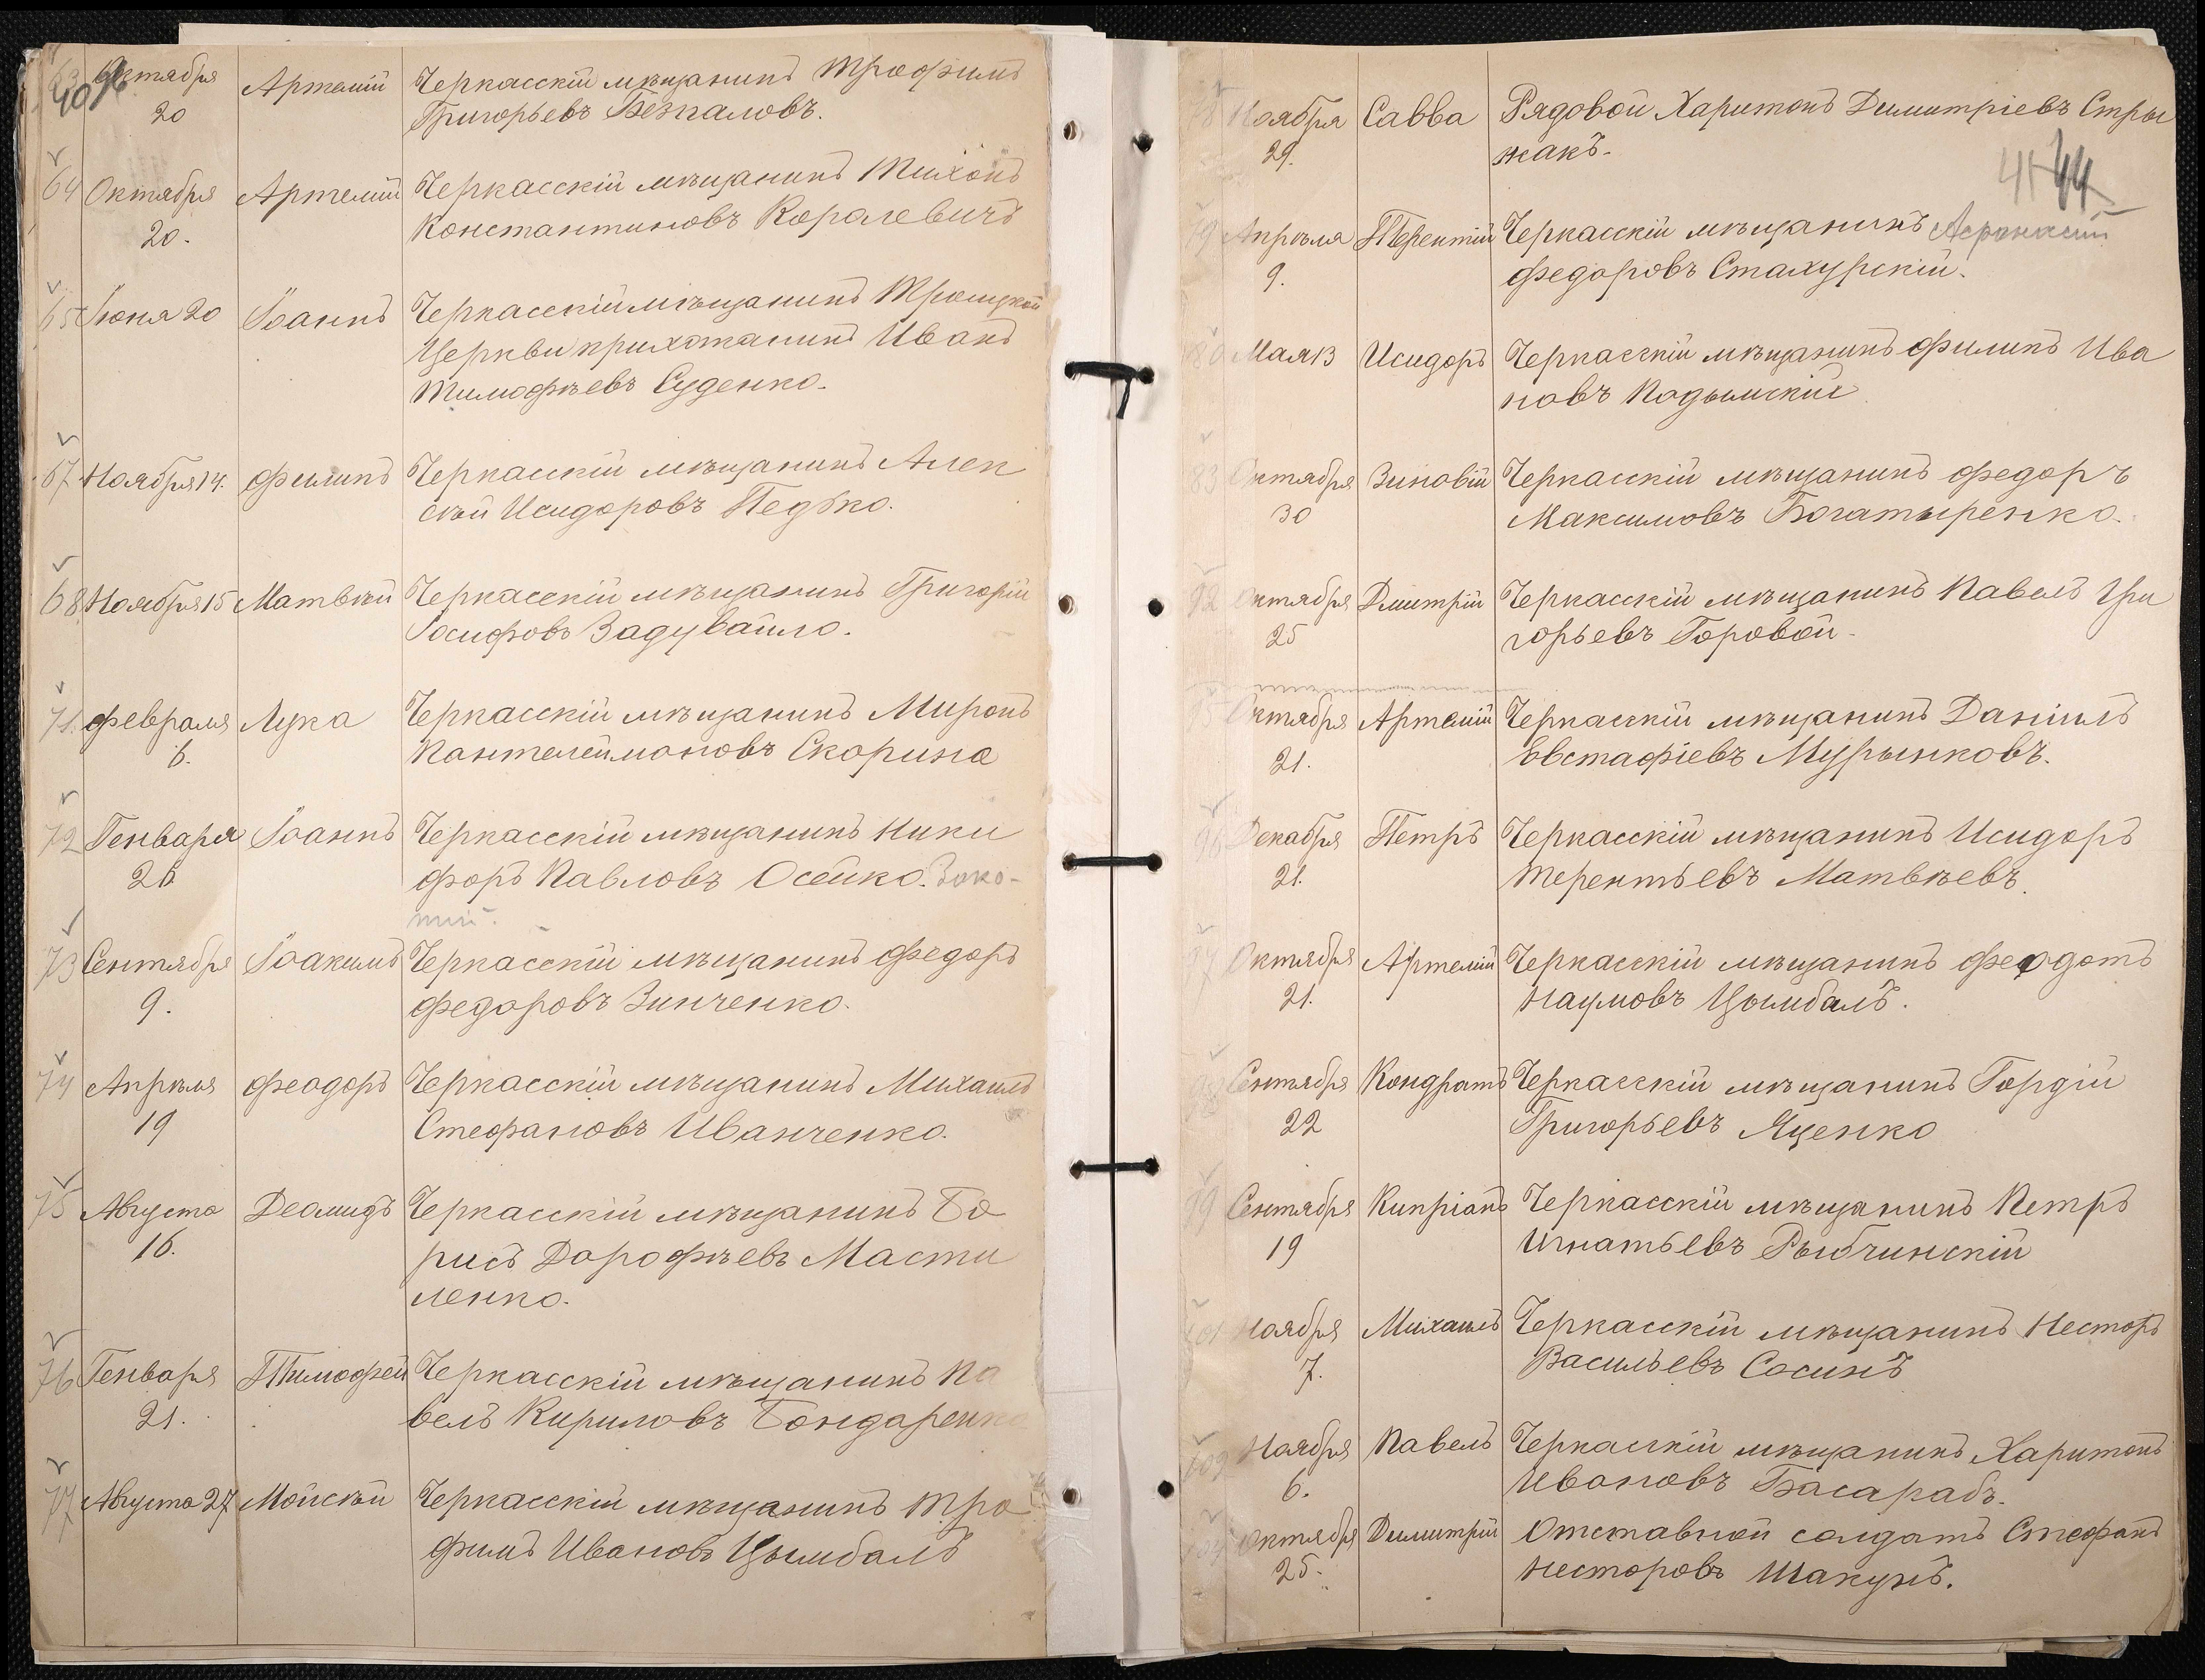 63 Октября Артемій Черкасскій мѣщанинъ Трофимъ
20 Григорьевъ Безпаловъ.
64 Октября Артемій Черкасскій мѣщанинъ Тихонъ
20. Константиновъ Королевичъ
65 Іюня 20 Іоаннъ Черкасскій мѣщанинъ Троицкой
Церкви прихожанинъ Иванъ
Тимофѣевъ Суденко.
67 Ноября 14. Филипъ Черкасскій мѣщанинъ Алек
сѣй Исидоровъ Педько.
68. Ноября 15 Матвѣй Черкасскій мѣщанинъ Григорій
Іосифовъ Задувайло.
71. Февраля Лука Черкасскій мѣщанинъ Миронъ
6. Пантелеймоновъ Скорина
72 Генваря Іоаннъ Черкасскій мѣщанинъ Ники
26 форъ Павловъ Осейко.
73 Сентября Іоакимъ Черкасскій мѣщанинъ Федоръ
9. Федоровъ Зинченко.
74 Апрѣля Феодоръ Черкасскій мѣщанинъ Михаилъ
19 Стефановъ Иванченко.
75 Августа Деомидъ Черкасскій мѣщанинъ Бо
16. рисъ Дорофѣевъ Масти
ленко.
76 Генваря Тимофей Черкасскій мѣщанинъ Па
21. велъ Кириловъ Бондаренко
77 Августа 27 Мойсѣй Черкасскій мѣщанинъ Тро
фимъ Ивановъ Цымбалъ
78 Ноября Савва Рядовой Харитонъ Димитріевъ Стры
29. жакъ.
41 44
79 Апрѣля Терентій Черкасскій мѣщанинъ Афанасій
9. Федоровъ Стахурскій.
80 Мая 13 Исидоръ Черкасскій мѣщанинъ Филипъ Ива
новъ Подымскій
83 Октября Зиновій Черкасскій мѣщанинъ Федоръ
30 Максимовъ Богатыренко.
92 Октября Дмитрій Черкасскій мѣщанинъ Павелъ Гри
25 горьевъ Горовой.
Октября Артемій Черкасскій мѣщанинъ Даніилъ
21. Евстафіевъ Мурынковъ.
96 Декабря Петръ Черкасскій мѣщанинъ Исидоръ
21. Терентьевъ Матвѣевъ.
97 Октября Артемій Черкасскій мѣщанинъ Феодотъ
21. Наумовъ Цымбалъ.
98 Сентября Кондратъ Черкасскій мѣщанинъ Гордій
22 Григорьевъ Яценко
99 Сентября Кипріанъ Черкасскій мѣщанинъ Петръ
19 Игнатьевъ Рыбчинскій
101 Ноября Михаилъ Черкасскій мѣщанинъ Несторъ
7. Васильевъ Сосинъ
Ноября Павелъ Черкасскій мѣщанинъ Харитонъ
6. Ивановъ Басарабъ.
Октября Димитрій Отставной солдатъ Стефанъ
25. Несторовъ Шакунъ.